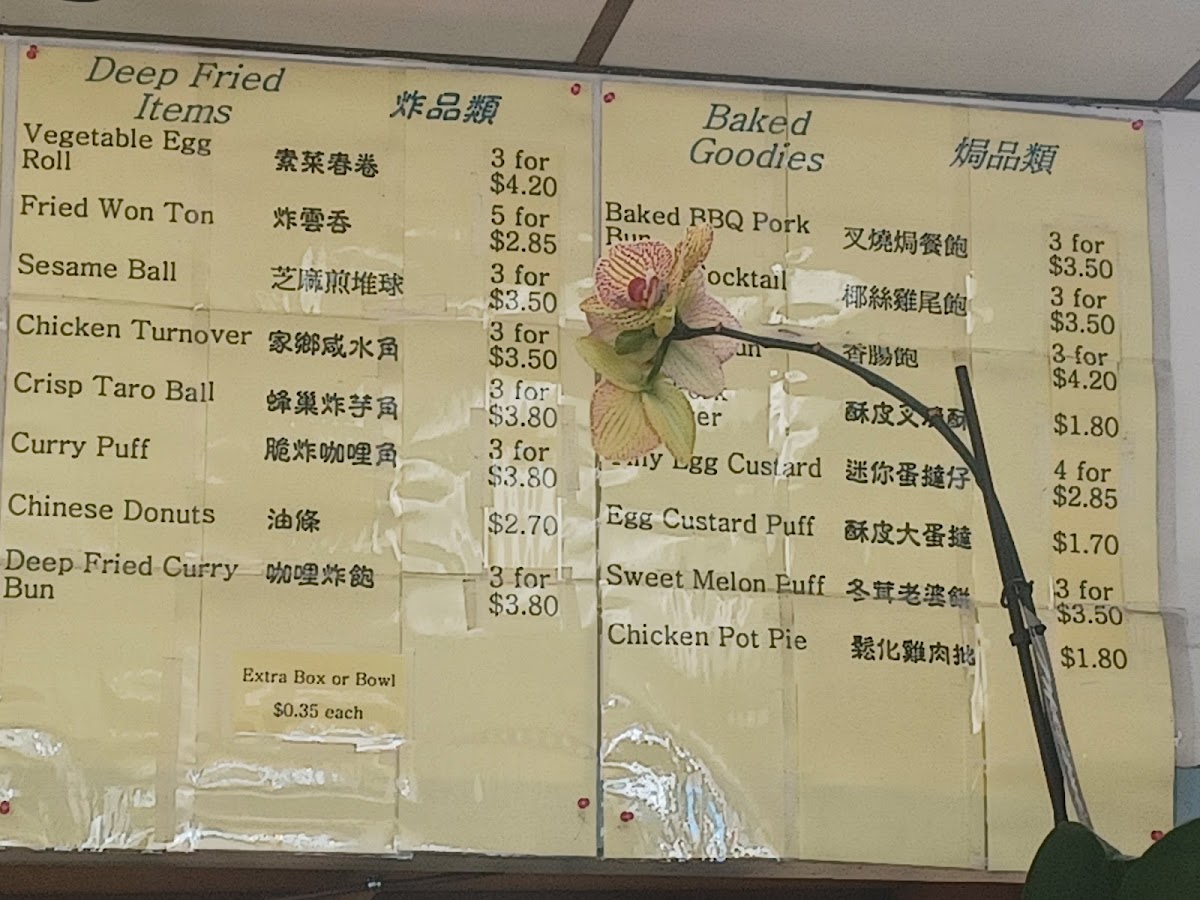 Deep Fried
Items
炸品類
Vegetable Egg
Roll
素菜春卷
3 for
$4.20
Fried Won Ton
炸雲吞
5 for
$2.85
Sesame Ball
芝麻煎堆球
3 for
$3.50
Chicken Turnover
家鄉咸水角
3 for
$3.50
Crisp Taro Ball
蜂巢炸芋角
3 for
$3.80
Curry Puff
脆炸咖哩角
3 for
$3.80
Chinese Donuts
油條
$2.70
Deep Fried Curry
Bun
咖哩炸飽
3 for
$3.80
Extra Box or Bowl
$0.35 each
Baked
Goodies
焗品類
Baked BBQ Pork
Bun
叉燒焗餐飽
3 for
$3.50
Cocktail
椰絲雞尾飽
3 for
$3.50
香腸飽
3 for
$4.20
酥皮叉燒酥
$1.80
Egg Custard
迷你蛋撻仔
4 for
$2.85
Egg Custard Puff
酥皮大蛋撻
$1.70
Sweet Melon Puff
冬茸老婆餅
3 for
$3.50
Chicken Pot Pie
鬆化雞肉批
$1.80